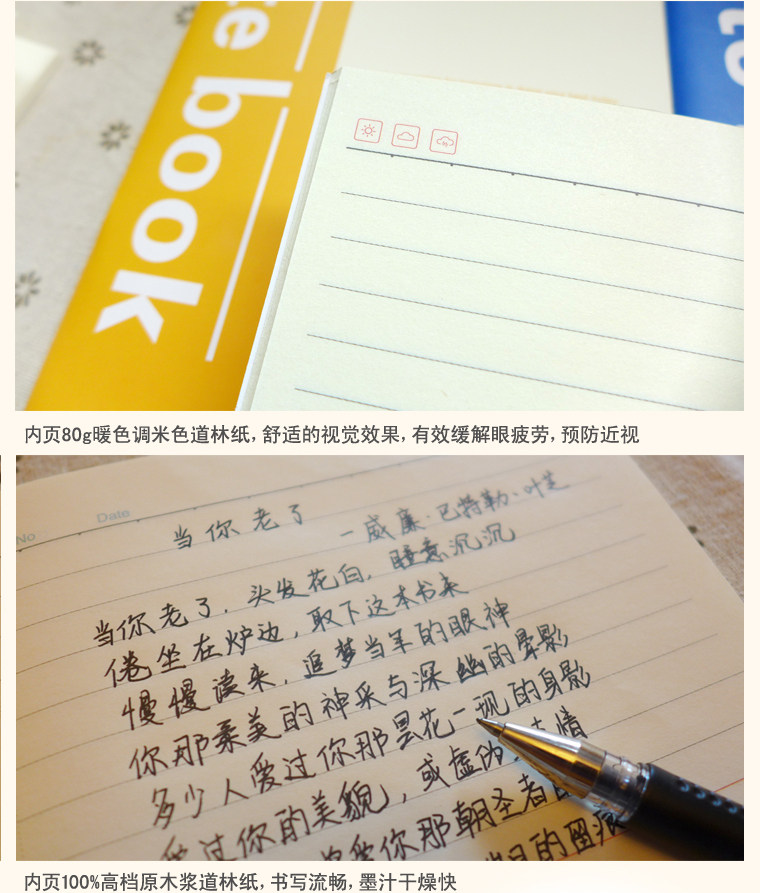 te book
to
内页80g暖色调米色道林纸，舒适的视觉效果，有效缓解眼疲劳，预防近视
No Date
当你老了
—威廉·巴特勒·叶芝
当你老了，头发花白，睡意沉沉
倦坐在炉边，取下这本书来
慢慢读来，追梦当年的眼神
你那柔美的神采与深幽的晕影
多少人爱过你那昙花一现的身影
爱过你的美貌，或虚伪 情
你那朝圣者
的留痕
内页100%高档原木浆道林纸，书写流畅，墨汁干燥快